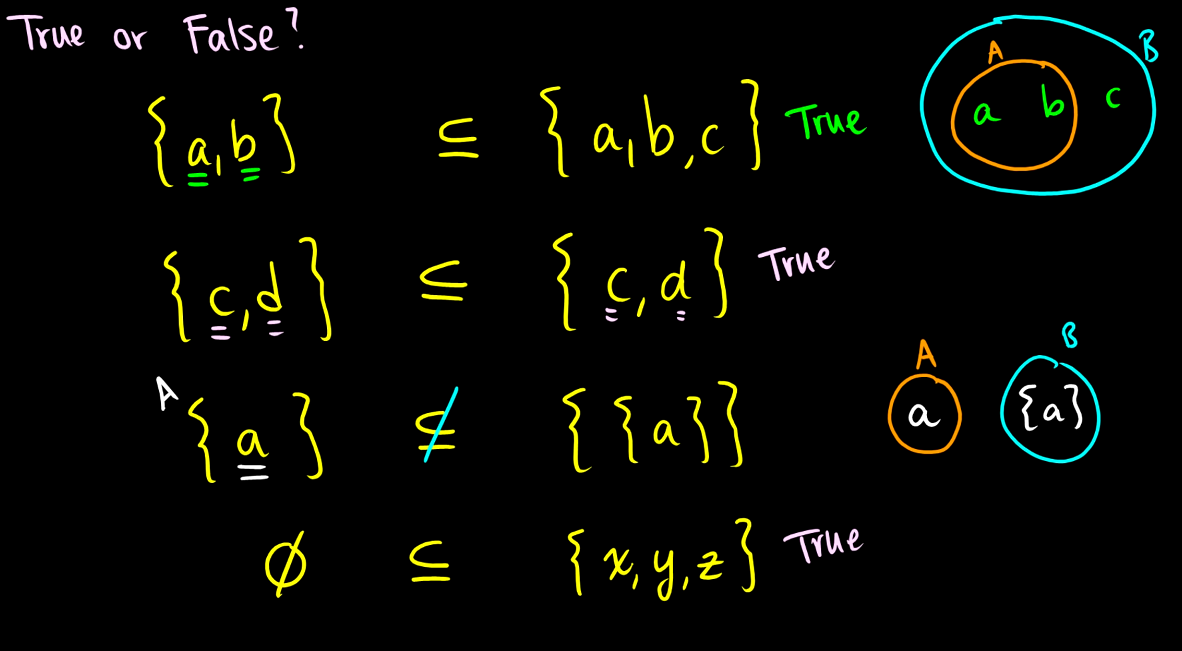 True or False?
A B
{a,b} ⊆ {a,b,c} True a b c
{c,d} ⊆ {c,d} True
A B
A {a} ⊈ {{a}} a {a}
∅ ⊆ {x,y,z} True